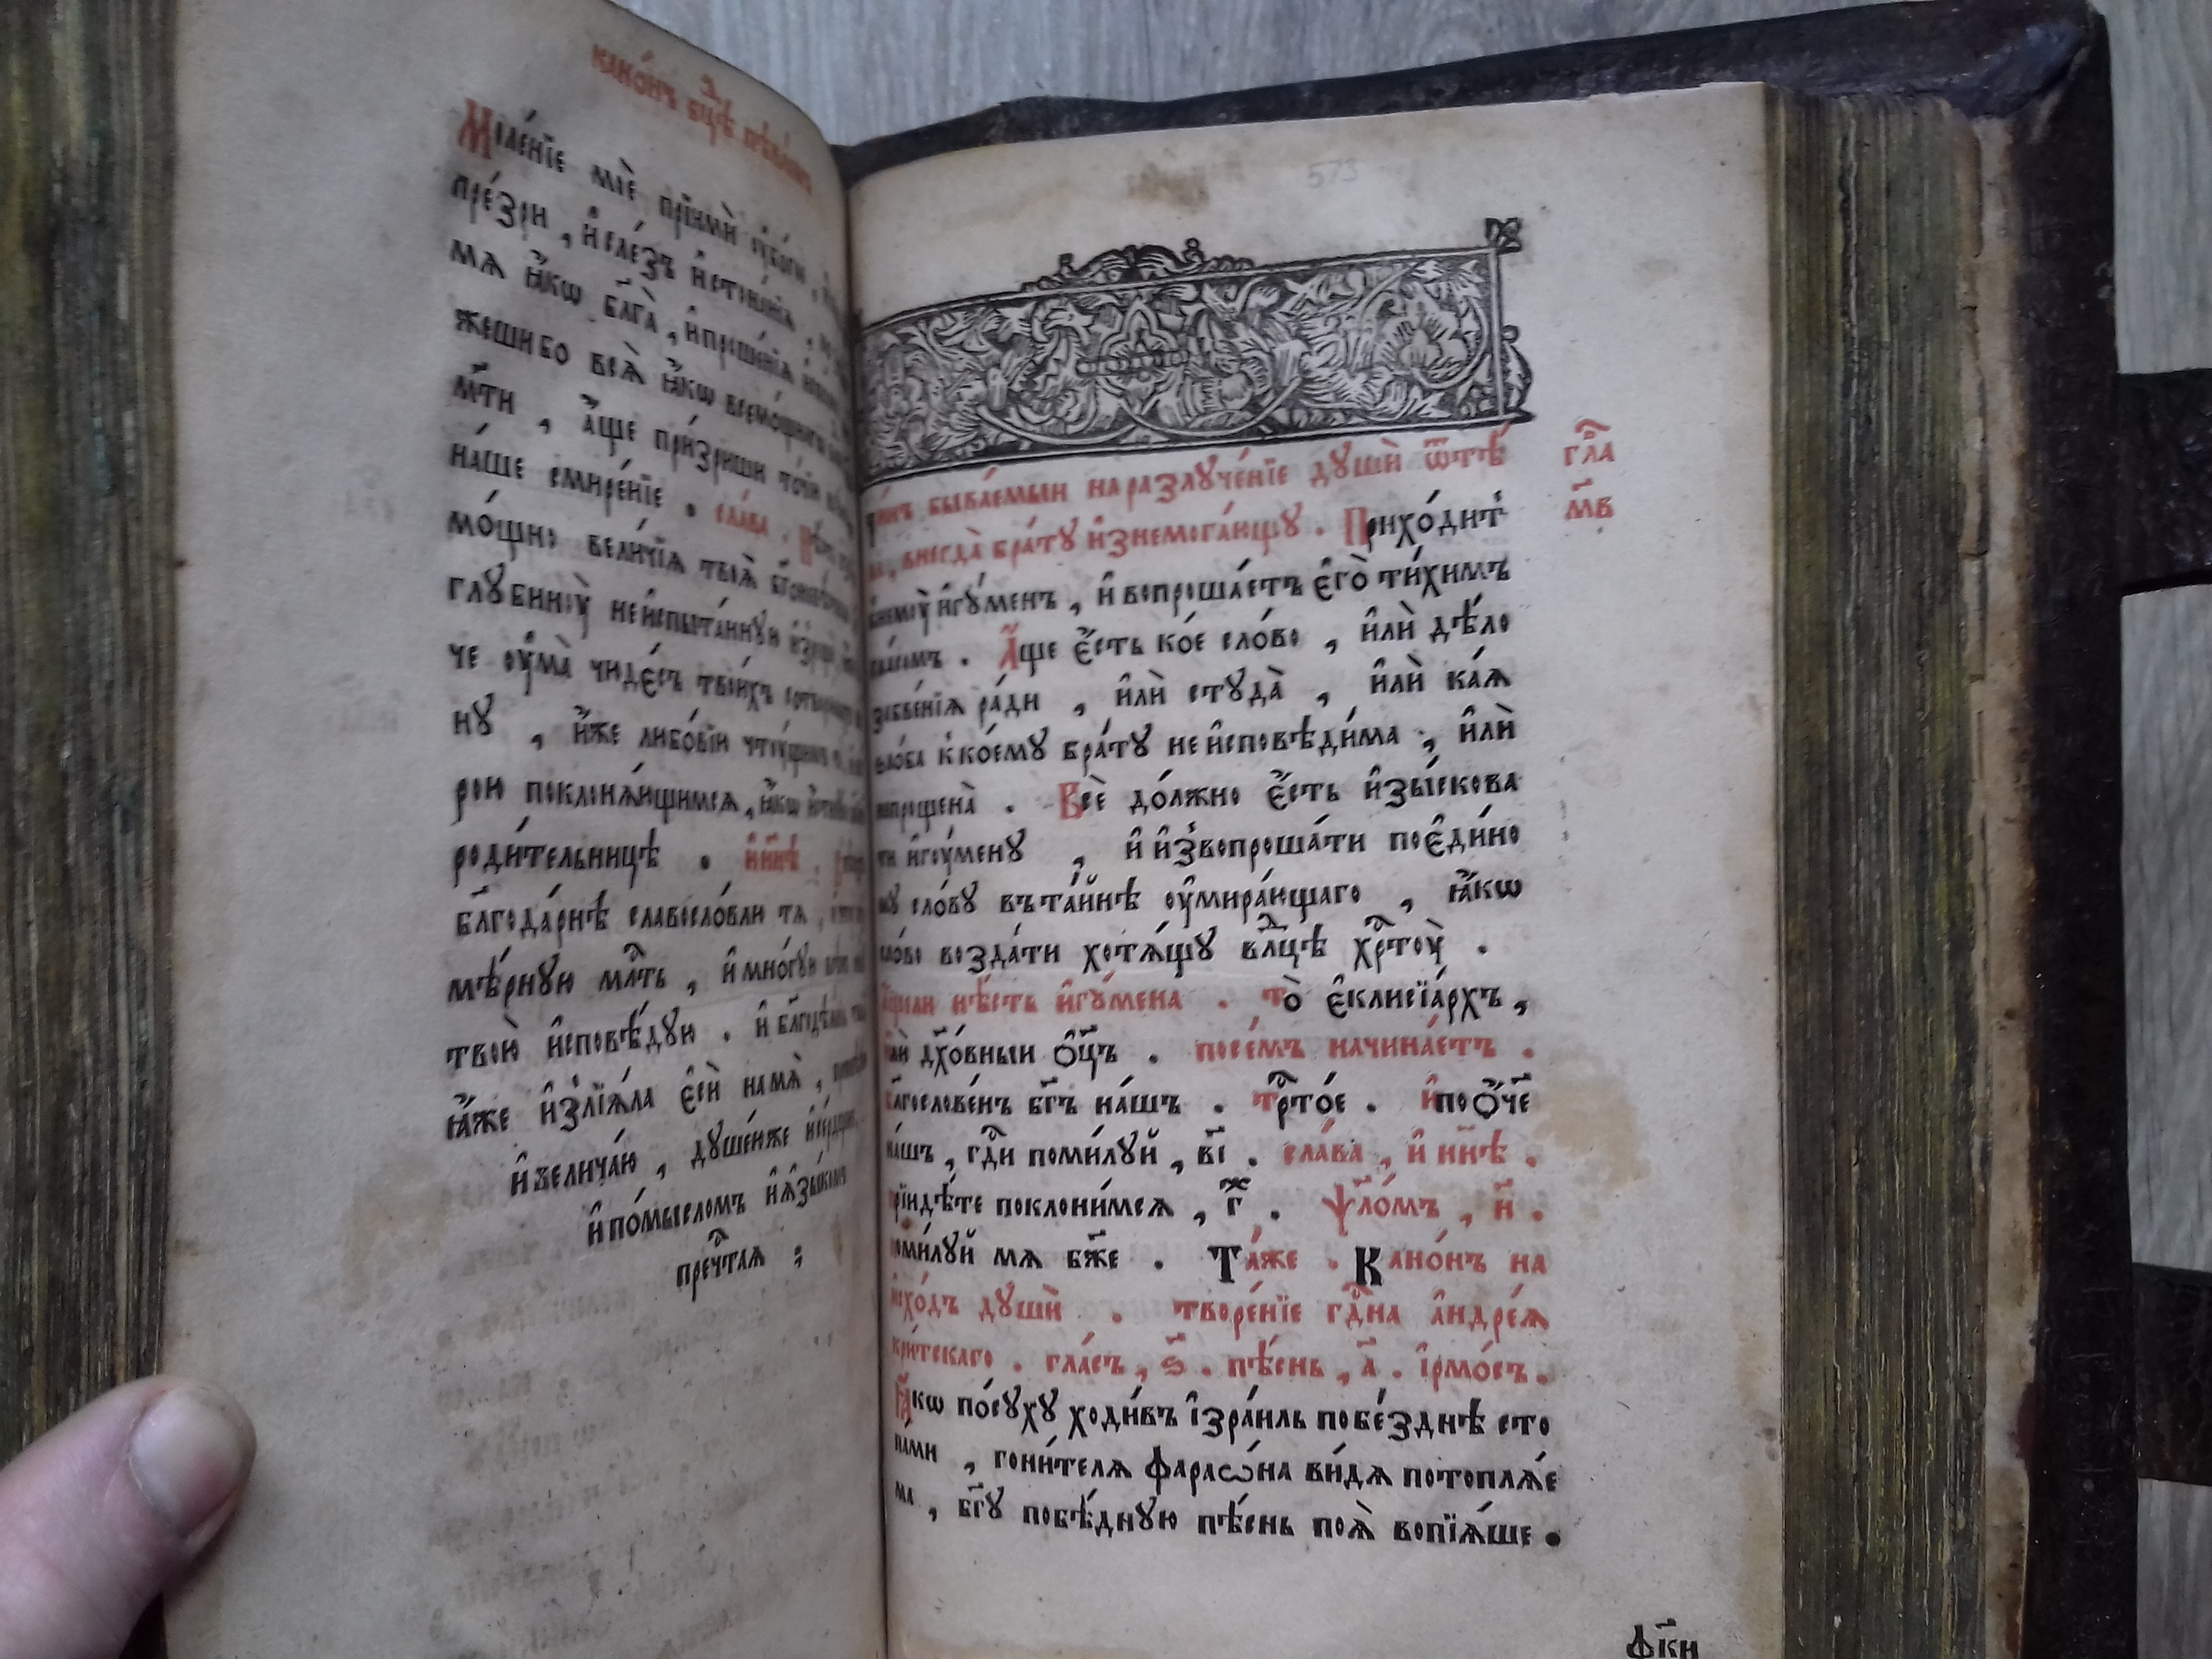 канѡ́нъ бцⷣѣ
Моле́нїе моѐ прїимѝ ᲂу҆бо́гїи
пре́зри , и҆ сле́зъ и҆сточа́нїѧ ,
мѧ ꙗ҆́кѡ бл҃га̀ , и҆ проше́нїѧ
жеши бо всѧ̀ ꙗ҆́кѡ всемо́щнаго
мт҃и , а҆́ще при́зриши то́чїю
на́ше смире́нїе . сла́ва .
мо́щно вели́чїѧ твоѧ̀
глꙋбинꙋ̀ неи҆спыта́ннꙋю
че ᲂу҆ма̀ чюде́съ твои́хъ
нꙋ , и҆́же любо́вїю чтꙋ́щимъ
рою поклонѧ́ющимсѧ , ꙗ҆́кѡ
роди́тельницѣ . и҆ нн҃ѣ .
бл҃года́рнѣ славосло́влю тѧ ,
мѣ́рнꙋю млⷭ҇ть , и҆ мно́гꙋю
твою̀ и҆сповѣ́дꙋю . и҆
ꙗ҆́же и҆злїѧ́ла є҆сѝ на мѧ̀ ,
и҆ велича́ю , дꙋше́ю же
и҆ по́мысломъ и҆ ѧ҆зы́комъ
пречⷭ҇таѧ ;
573
чи́нъ быва́емыи на разлꙋче́нїе дꙋшѝ ѿ тѣ́
ла , внегда̀ бра́тꙋ и҆знемога́ющꙋ . Прихо́дит̾
к̾немꙋ̀ и҆гꙋ́менъ , и҆ вопроша́етъ є҆го̀ ти́химъ
гла́сомъ . А҆́ще є҆́сть ко́е сло́во , и҆лѝ дѣ́ло
забве́нїѧ ра́ди , и҆лѝ стꙋда̀ , и҆лѝ ка́ѧ
ѕло́ба к̾ко́емꙋ бра́тꙋ не и҆сповѣ́дима , и҆лѝ
непроще́на . Всѐ до́лжно є҆́сть и҆зы́скова
ти и҆гꙋ́менꙋ , и҆ и҆звопроша́ти по є҆ди́но
мꙋ сло́вꙋ въ та́йнѣ ᲂу҆мира́ющаго , ꙗ҆́кѡ
сло́во возда́ти хотѧ́щꙋ влⷣцѣ хрⷭ҇тꙋ̀ .
А҆́щели нѣ́сть и҆гꙋ́мена . то̀ є҆клисїа́рхъ ,
и҆лѝ дх҃о́вныи ѻ҆ц҃ъ . посе́мъ начина́етъ .
Бл҃гослове́нъ бг҃ъ на́шъ . трⷭ҇то́е . и҆ по ѻ҆́ч҃е
на́шъ , гдⷭ҇и поми́лꙋй , в҃і . сла́ва , и҆ нн҃ѣ .
прїидѣ́те поклони́мсѧ , г҃ . ѱало́мъ , н҃ .
поми́лꙋй мѧ бж҃е . Та́же . Кано́нъ на
и҆схо́дъ дꙋшѝ . творе́нїе гдⷭ҇на а҆ндре́ѧ
кри́тскаго . гла́съ , ѕ҃ . пѣ́снь , а҃ . і҆рмо́съ .
Ꙗ҆́кѡ по сꙋ́хꙋ ходи́въ і҆зра́иль по бе́зднѣ сто
па́ми , гони́телѧ фараѡ́на ви́дѧ потоплѧ́е
ма , бг҃ꙋ побѣ́днꙋю пѣ́снь поѧ̀ вопїѧ́ше .
глⷡ҇а
м҃в
фк҃и